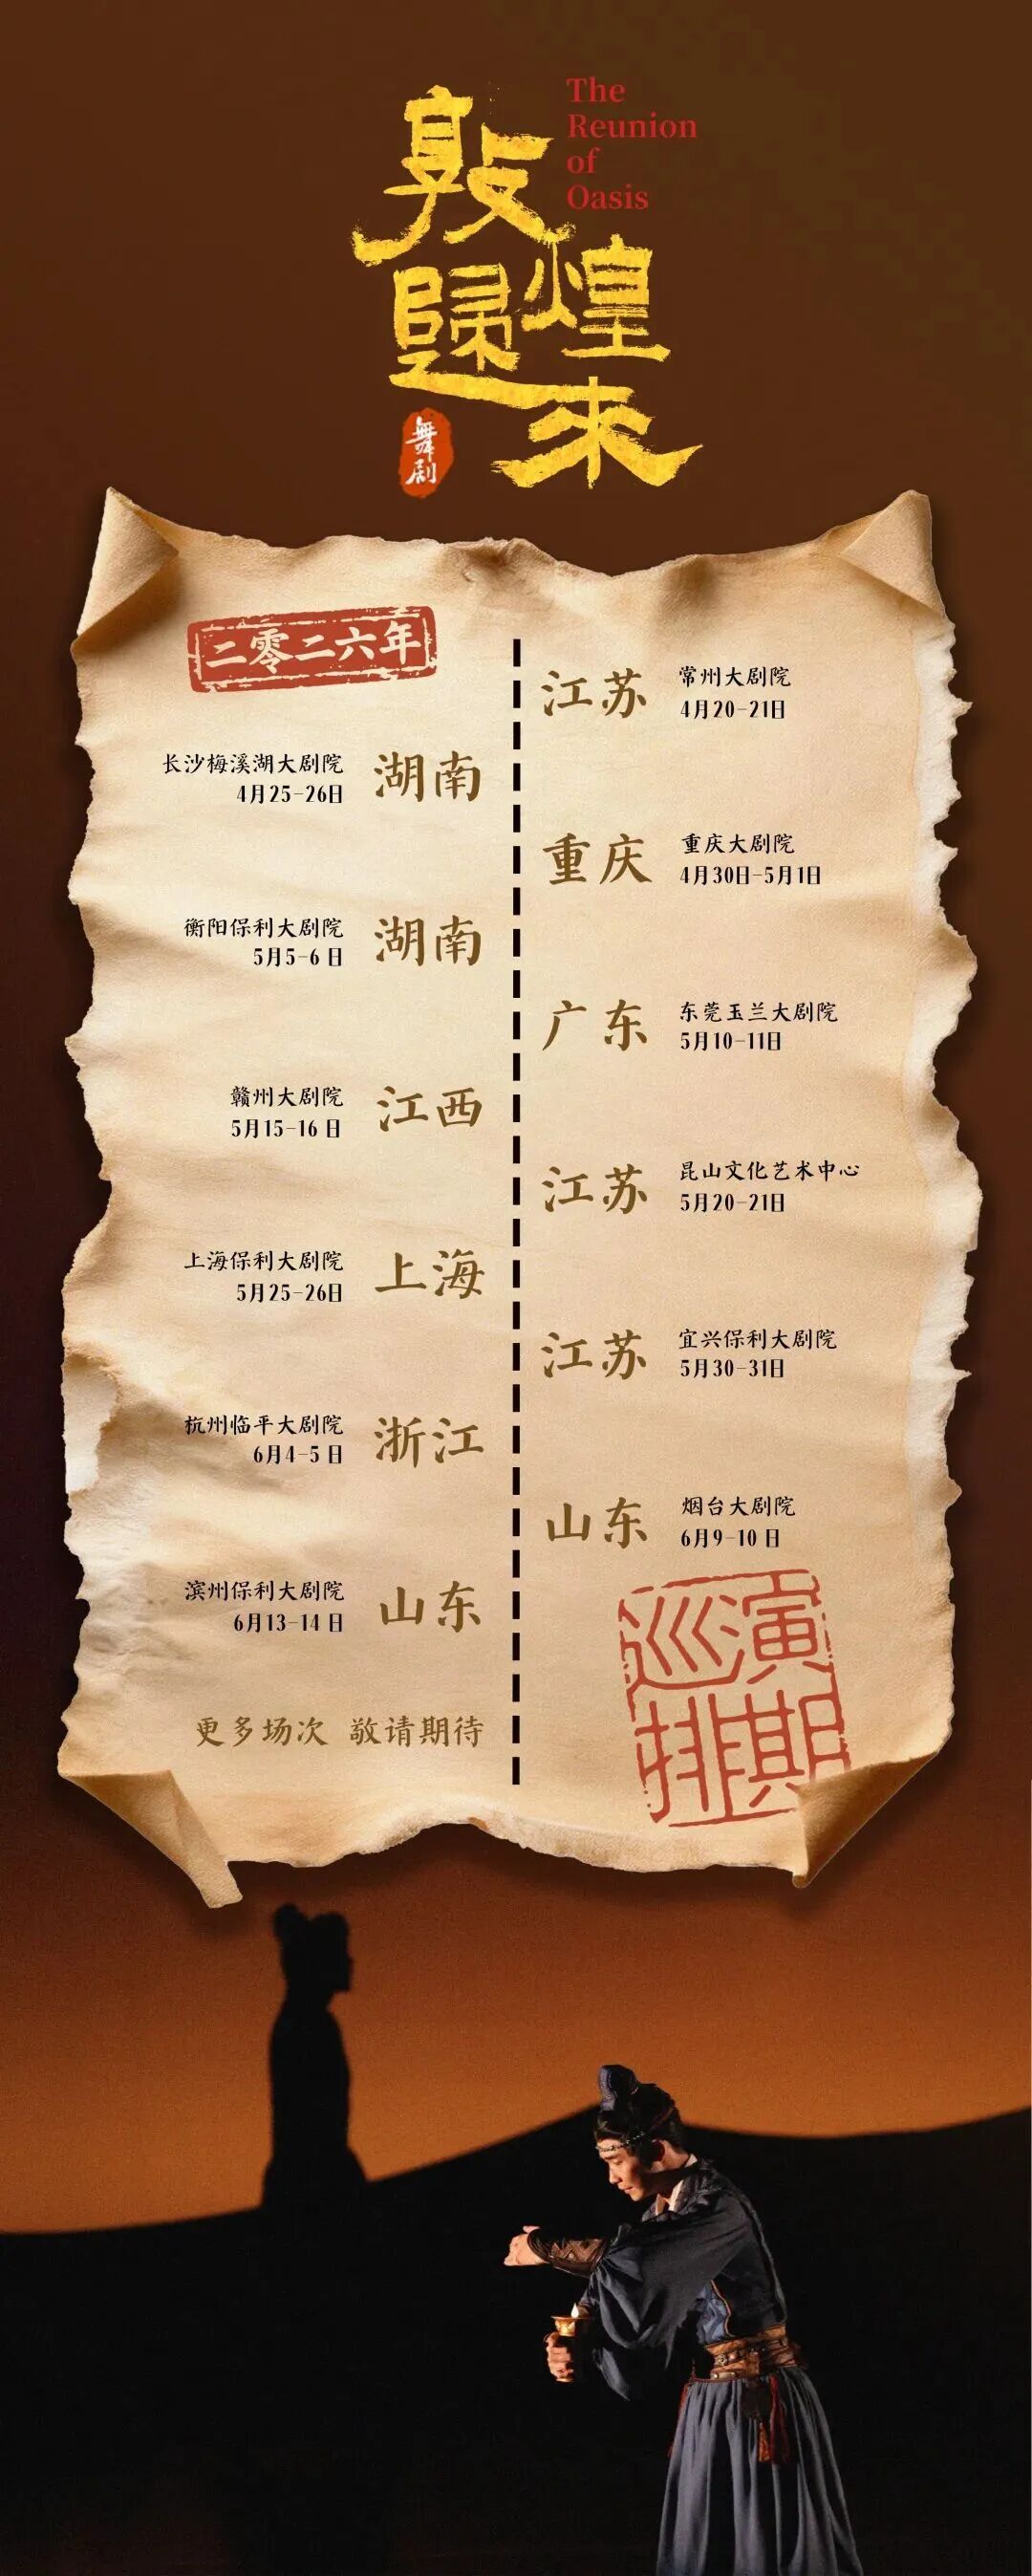 The
Reunion
of
Oasis
敦煌
歸來
舞剧
二零二六年
江苏
常州大剧院
4月20-21日
长沙梅溪湖大剧院
4月25-26日
湖南
重庆
重庆大剧院
4月30日-5月1日
衡阳保利大剧院
5月5-6 日
湖南
广东
东莞玉兰大剧院
5月10-11日
赣州大剧院
5月15-16 日
江西
江苏
昆山文化艺术中心
5月20-21日
上海保利大剧院
5月25-26日
上海
江苏
宜兴保利大剧院
5月30-31日
杭州临平大剧院
6月4-5 日
浙江
山东
烟台大剧院
6月9-10 日
滨州保利大剧院
6月13-14 日
山东
巡演
排期
更多场次 敬请期待